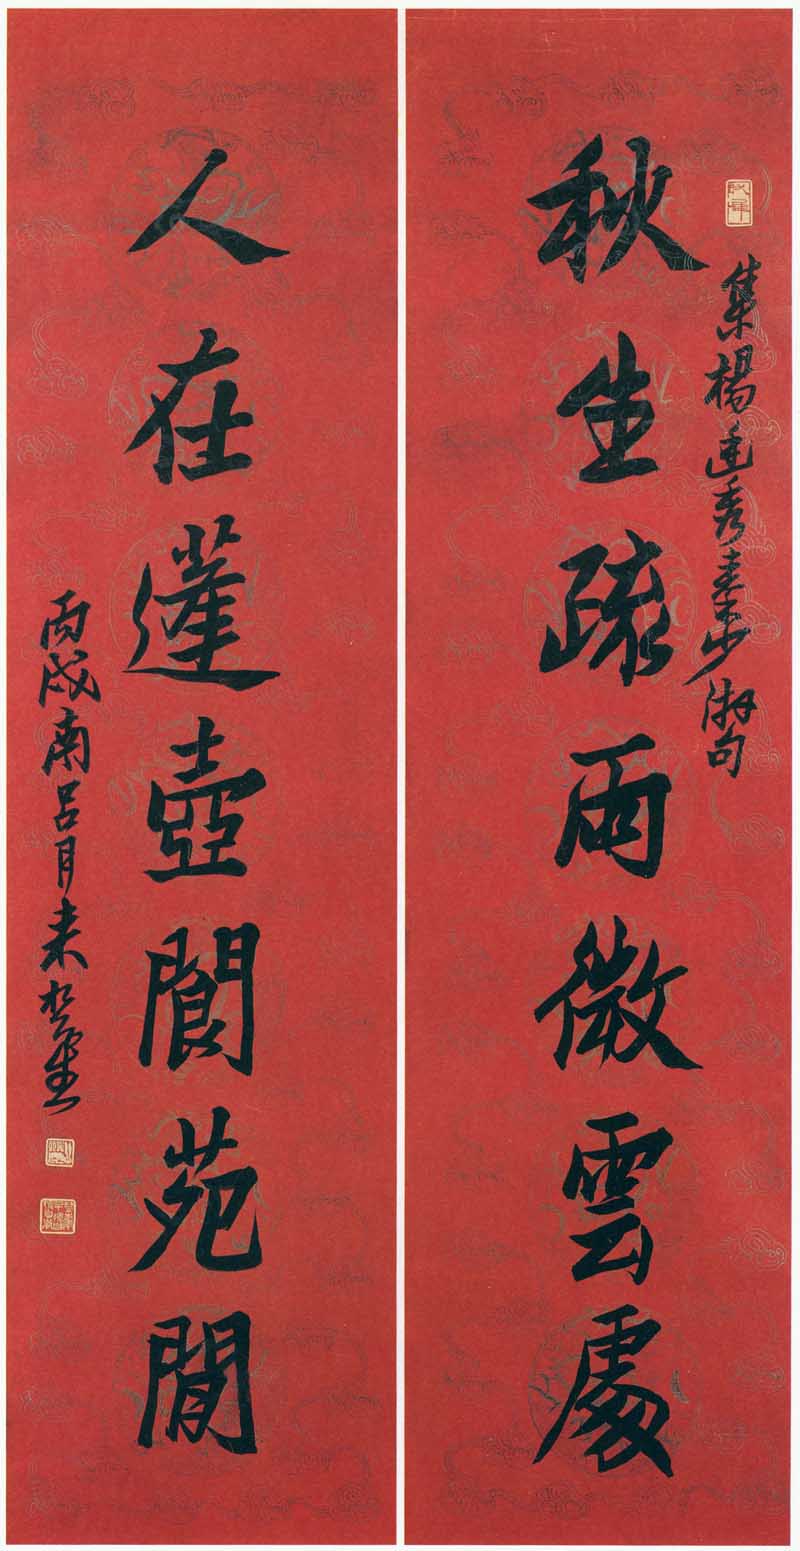 秋生疏雨微雲處
集楊廷秀秦少游句
人在蓬壺閬苑間
丙戌南呂月來楚生